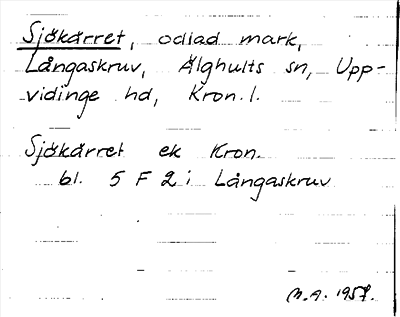 Sjökärret, odlad mark,
Långaskruv, Älghults sn, Upp-
vidinge hd, Kron. l.
Sjökärret ek Kron.
bl. 5 F 2 i Långaskruv
M.A. 1957.